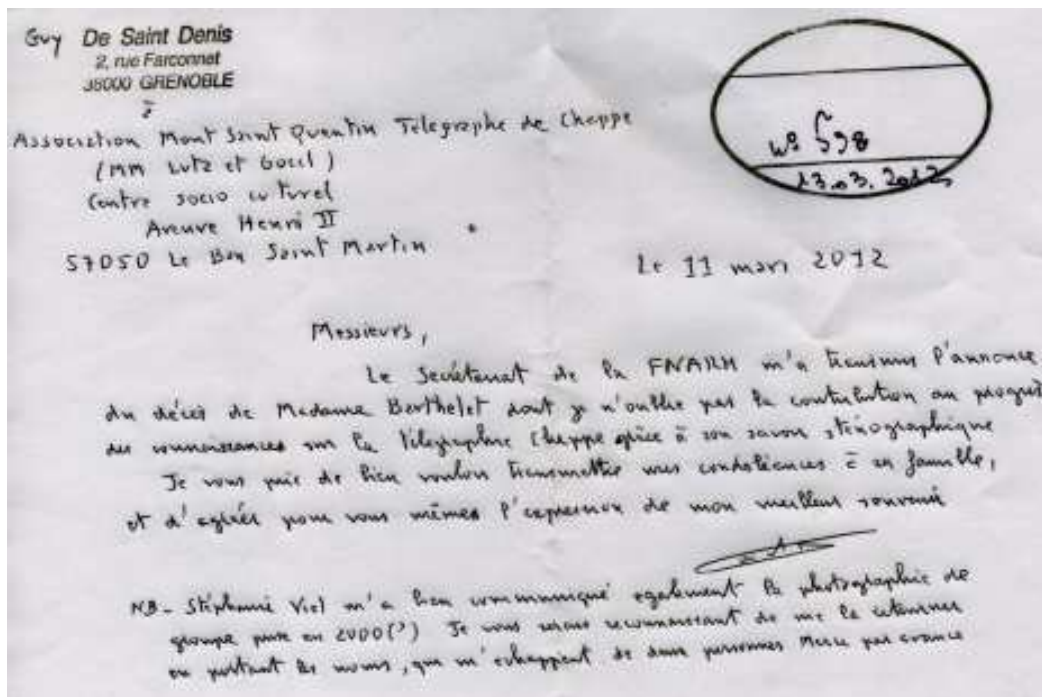 Guy De Saint Denis
2, rue Farconnet
38000 GRENOBLE
à
Association Mont Saint Quentin Telegraphe de Chappe
(MM Lutz et Gocel)
Centre socio culturel
Avenue Henri II
57050 Le Ban Saint Martin
N° 598
13.03.2012
Le 11 mars 2012
Messieurs,
Le Secrétariat de la FNARH m'a transmis l'annonce
du décès de Madame Berthelet dont je n'oublie pas la contribution au progrès
des connaissances sur la télégraphie Chappe grâce à son savoir sténographique
Je vous prie de bien vouloir transmettre mes condoléances à sa famille,
et d'agréer pour vous mêmes l'expression de mon meilleur souvenir
NB - Stéphanie Viel m'a bien communiqué également la photographie de
groupe prise en 2000(?) Je vous serais reconnaissant de me la retourner
en portant les noms, qui m'échappent de deux personnes Merci par avance